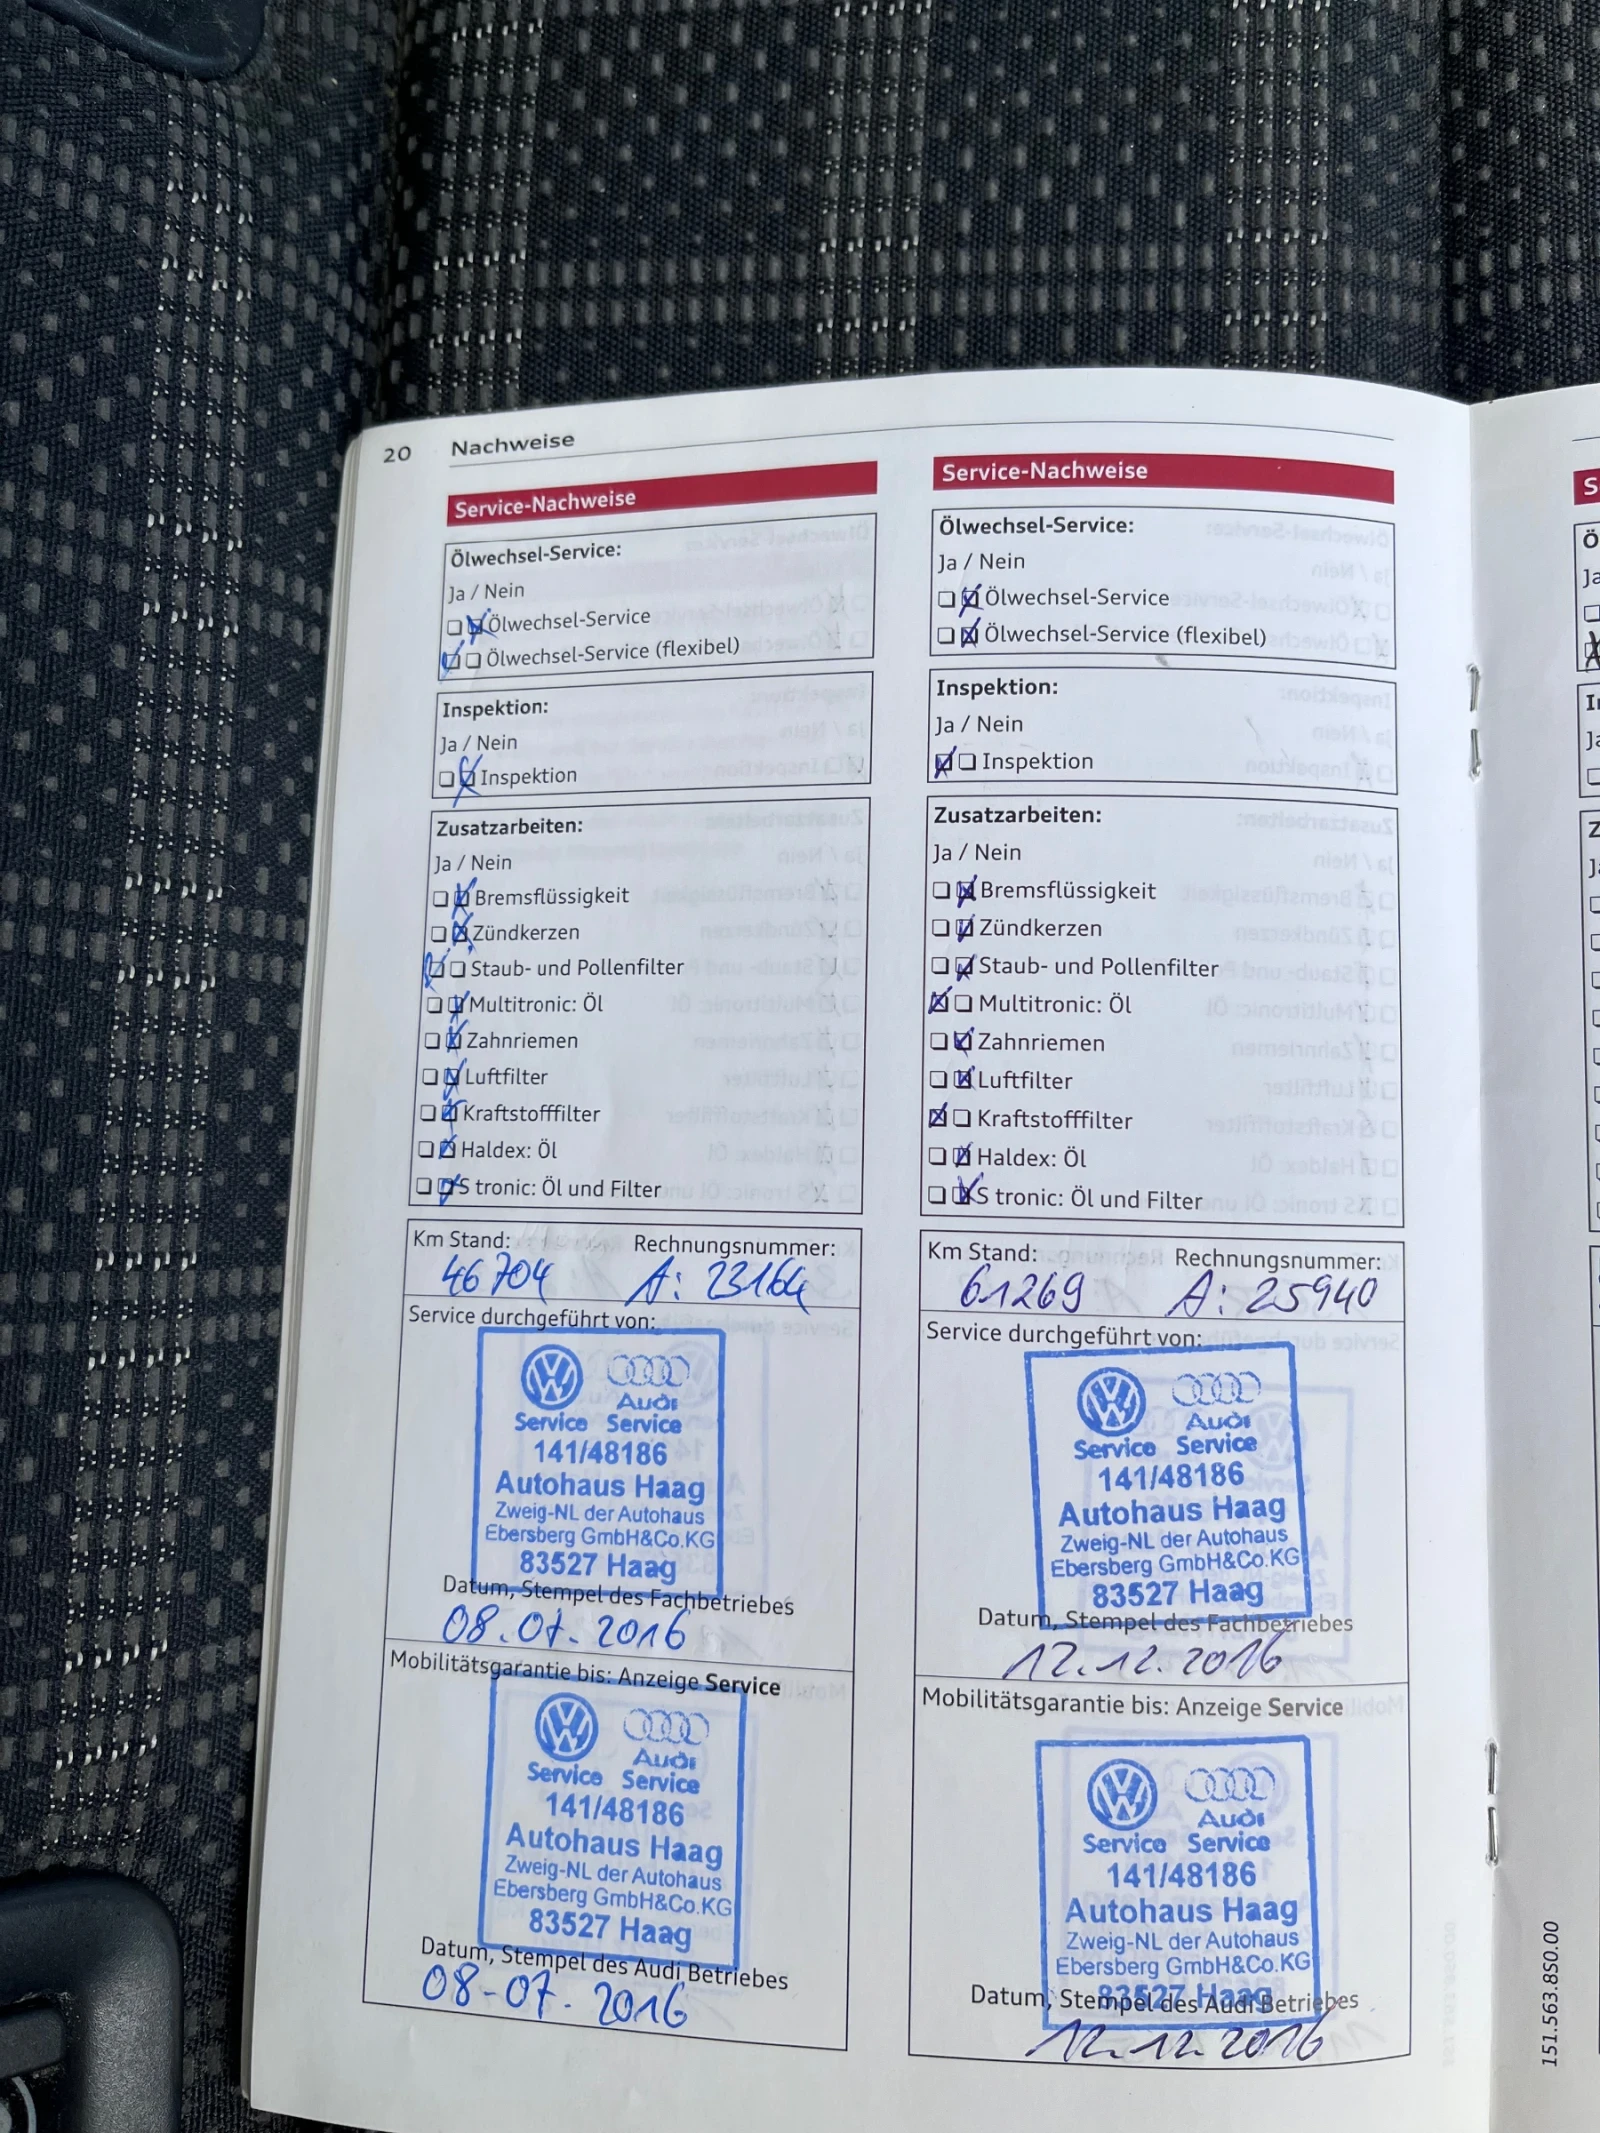 20 Nachweise
Service-Nachweise
Ölwechsel-Service:
Ja / Nein
Ölwechsel-Service
Ölwechsel-Service (flexibel)
Inspektion:
Ja / Nein
Inspektion
Zusatzarbeiten:
Ja / Nein
Bremsflüssigkeit
Zündkerzen
Staub- und Pollenfilter
Multitronic: Öl
Zahnriemen
Luftfilter
Kraftstofffilter
Haldex: Öl
S tronic: Öl und Filter
Km Stand: Rechnungsnummer:
46704 A: 23164
Service durchgeführt von:
Audi
Service Service
141/48186
Autohaus Haag
Zweig-NL der Autohaus
Ebersberg GmbH&Co.KG
83527 Haag
Datum, Stempel des Fachbetriebes
08.07.2016
Mobilitätsgarantie bis: Anzeige Service
Audi
Service Service
141/48186
Autohaus Haag
Zweig-NL der Autohaus
Ebersberg GmbH&Co.KG
83527 Haag
Datum, Stempel des Audi Betriebes
08-07.2016
Service-Nachweise
Ölwechsel-Service:
Ja / Nein
Ölwechsel-Service
Ölwechsel-Service (flexibel)
Inspektion:
Ja / Nein
Inspektion
Zusatzarbeiten:
Ja / Nein
Bremsflüssigkeit
Zündkerzen
Staub- und Pollenfilter
Multitronic: Öl
Zahnriemen
Luftfilter
Kraftstofffilter
Haldex: Öl
S tronic: Öl und Filter
Km Stand: Rechnungsnummer:
61269 A: 25940
Service durchgeführt von:
Audi
Service Service
141/48186
Autohaus Haag
Zweig-NL der Autohaus
Ebersberg GmbH&Co.KG
83527 Haag
Datum, Stempel des Fachbetriebes
12.12.2016
Mobilitätsgarantie bis: Anzeige Service
Audi
Service Service
141/48186
Autohaus Haag
Zweig-NL der Autohaus
Ebersberg GmbH&Co.KG
83527 Haag
Datum, Stempel des Audi Betriebes
12.12.2016
151.563.8S0.00